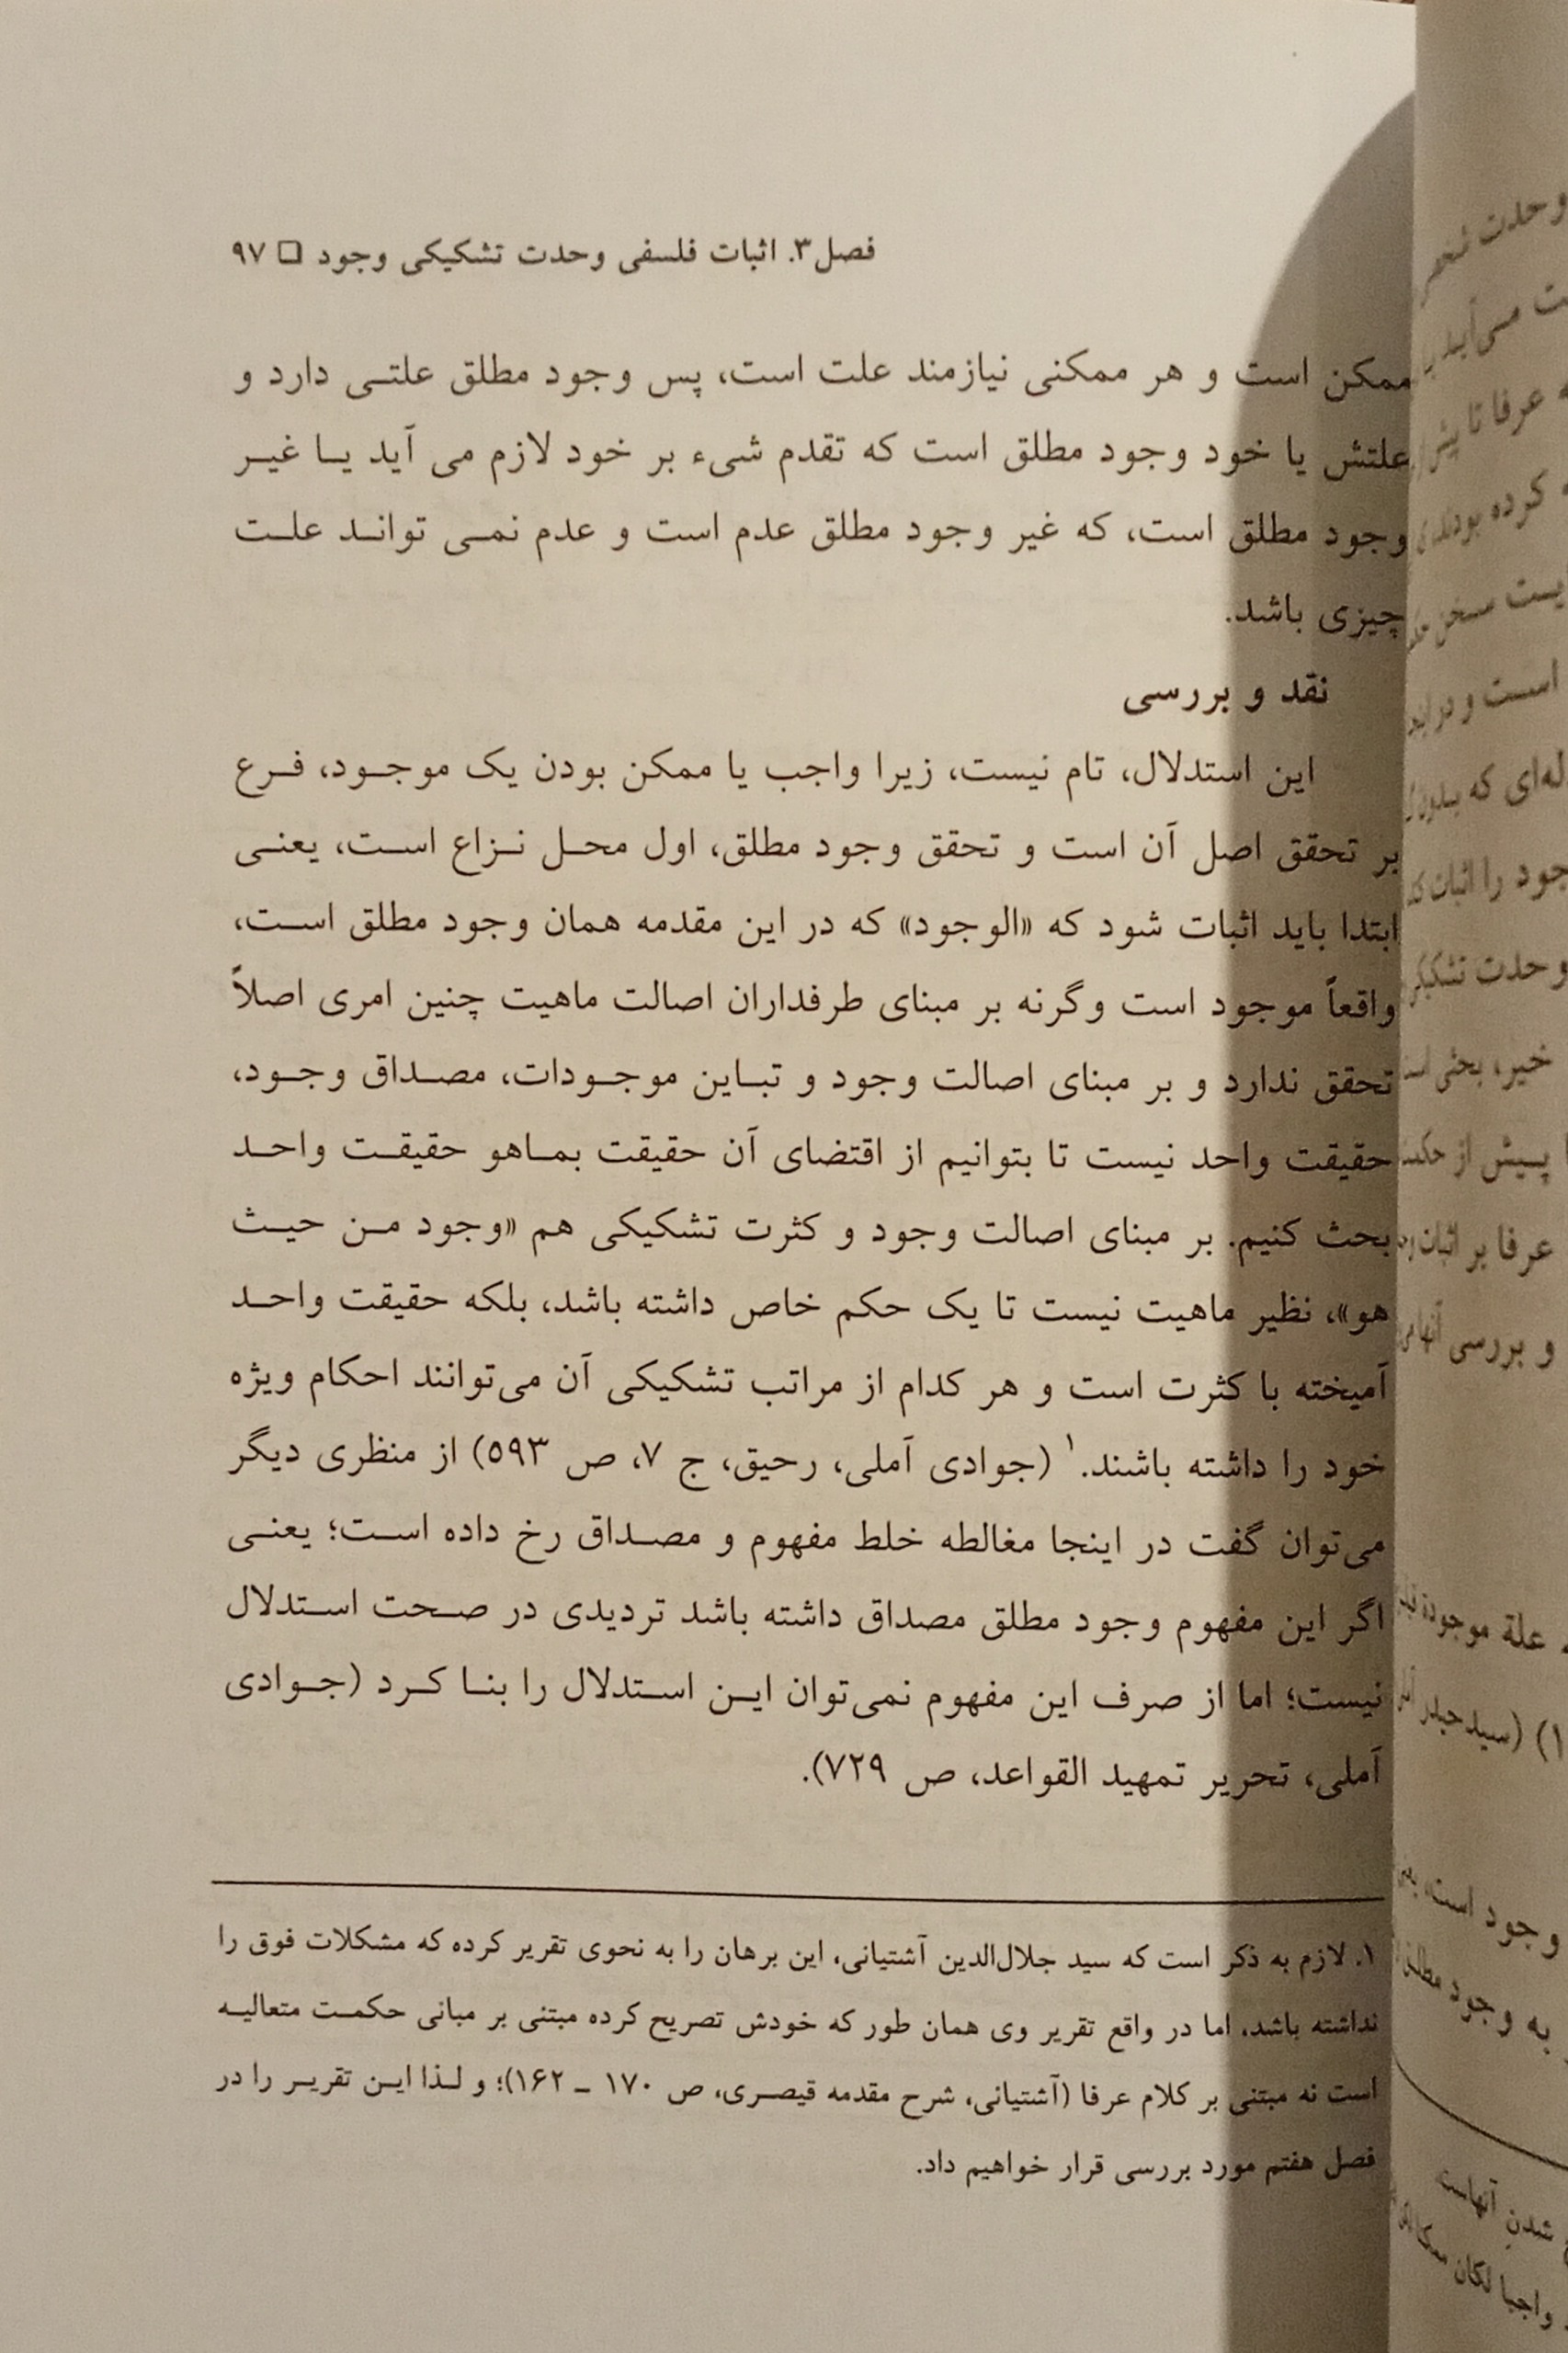 فصل۳. اثبات فلسفی وحدت تشکیکی وجود □ ۹۷
ممکن است و هر ممکنی نیازمند علت است، پس وجود مطلق علتی دارد و
علتش یا خود وجود مطلق است که تقدم شیء بر خود لازم می آید یا غیر
وجود مطلق است، که غیر وجود مطلق عدم است و عدم نمی تواند علت
چیزی باشد.
نقد و بررسی
این استدلال، تام نیست، زیرا واجب یا ممکن بودن یک موجود، فرع
بر تحقق اصل آن است و تحقق وجود مطلق، اول محل نزاع است، یعنی
ابتدا باید اثبات شود که «الوجود» که در این مقدمه همان وجود مطلق است،
واقعاً موجود است وگرنه بر مبنای طرفداران اصالت ماهیت چنین امری اصلاً
تحقق ندارد و بر مبنای اصالت وجود و تباین موجودات، مصداق وجود،
حقیقت واحد نیست تا بتوانیم از اقتضای آن حقیقت بماهو حقیقت واحد
بحث کنیم. بر مبنای اصالت وجود و کثرت تشکیکی هم «وجود من حیث
هو»، نظیر ماهیت نیست تا یک حکم خاص داشته باشد، بلکه حقیقت واحد
آمیخته با کثرت است و هر کدام از مراتب تشکیکی آن می‌توانند احکام ویژه
خود را داشته باشند.۱ (جوادی آملی، رحیق، ج ۷، ص ۵۹۳) از منظری دیگر
می‌توان گفت در اینجا مغالطه خلط مفهوم و مصداق رخ داده است؛ یعنی
اگر این مفهوم وجود مطلق مصداق داشته باشد تردیدی در صحت استدلال
نیست؛ اما از صرف این مفهوم نمی‌توان این استدلال را بنا کرد (جوادی
آملی، تحریر تمهید القواعد، ص ۷۲۹).
۱. لازم به ذکر است که سید جلال‌الدین آشتیانی، این برهان را به نحوی تقریر کرده که مشکلات فوق را
نداشته باشد، اما در واقع تقریر وی همان طور که خودش تصریح کرده مبتنی بر مبانی حکمت متعالیه
است نه مبتنی بر کلام عرفا (آشتیانی، شرح مقدمه قیصری، ص ۱۷۰ ـ ۱۶۲)؛ و لذا این تقریر را در
فصل هفتم مورد بررسی قرار خواهیم داد.
وحدت
عرفا تا
کرده
است و در
له‌ای که بدون
جود را اثبات
وحدت تشکیکی
خیر، بحثی
پیش از
عرفا بر اثبات
و بررسی آنها
علة موجودة
۱) (سیدحیدر
وجود است،
به وجود مطلق
شدن آنهاست
واجبا لکان